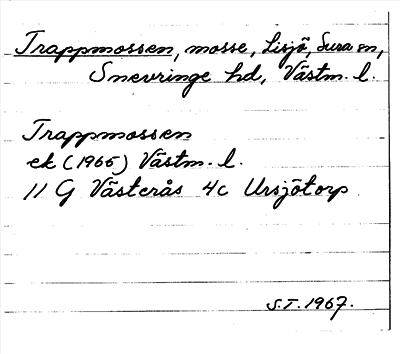 Trappmossen, mosse, Lisjö, Sura sn,
Snevringe hd, Västm. l.
Trappmossen
ek (1965) Västm. l.
11 G Västerås 4c Ursjötorp
S.T. 1967.